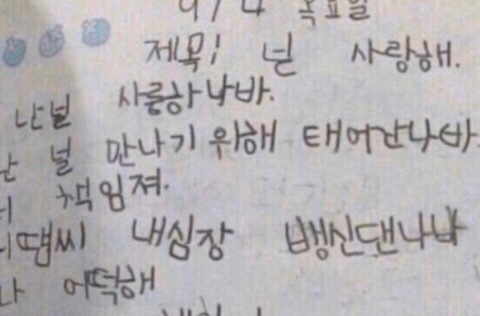 9/4 목요일
제목! 넌 사랑해.
난널 사릉하나바.
난 널 만나기 위해 태어간나바.
책임져.
땜씨 내심장 뱅신댄나바
나 어떡해